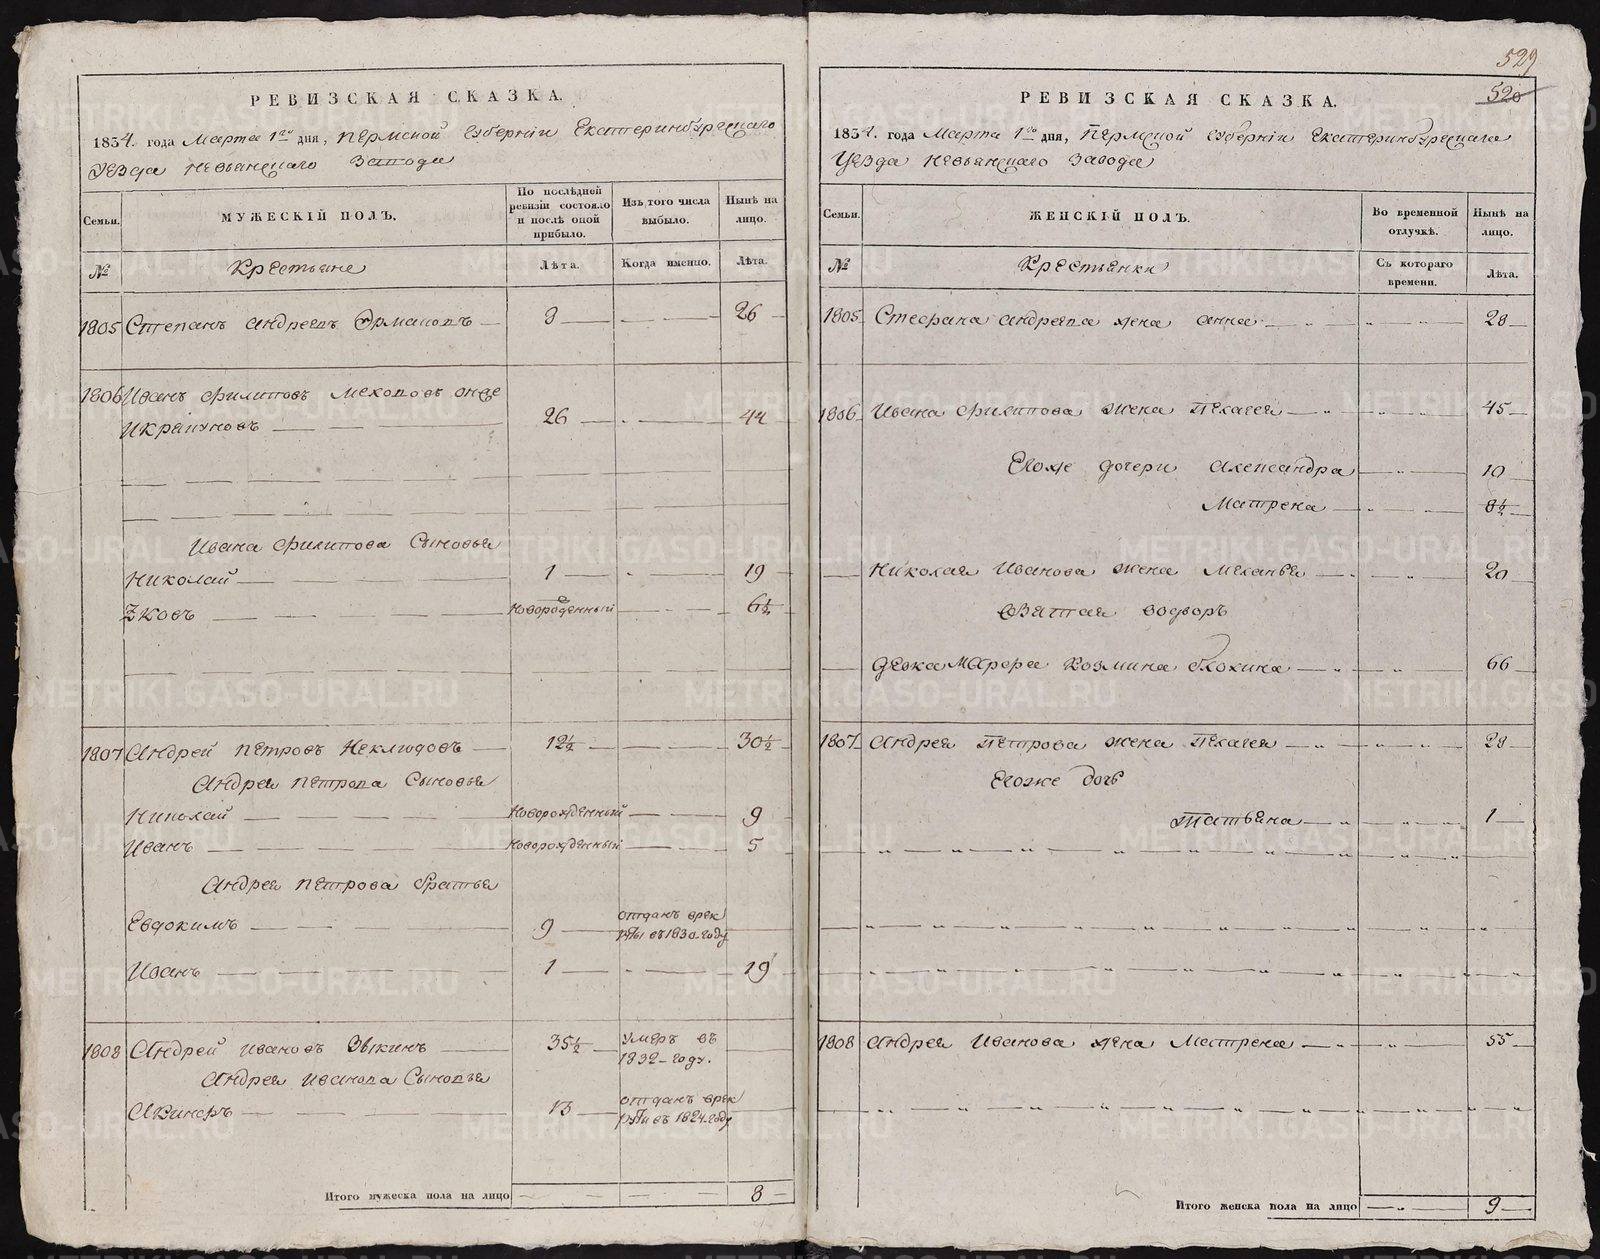 529
520
РЕВИЗСКАЯ СКАЗКА.
1834. года Марта 1го дня, Пермской Губернїи Екатеринбургскаго
Уезда Невьянскаго Завода
Семьи.
МУЖЕСКІЙ ПОЛЪ.
По послѣдней ревизіи состояло и послѣ оной прибыло.
Изъ того числа выбыло.
Нынѣ на лицо.
№
Крестьяне
Лѣта.
Когда именно.
Лѣта.
1805 Степанъ Андреевъ Ермаковъ — 8 — 26
1806 Иванъ Филиповъ Мехововъ онже
— 26 — 44
Ивана Филипова Сыновья
Николай — 1 — 19
Яковъ — Новорожденный — 6½
1807 Андрей Петровъ Неклюдовъ — 12½ — 30½
Андрея Петрова Сыновья
Николай — Новорожденный — 9
Иванъ — Новорожденный — 5
Андрея Петрова Братья
Евдокимъ — 9 — отданъ врек
руты въ 1830 году
Иванъ — 1 — 19
1808 Андрей Ивановъ Зыкинъ — 35½ Умеръ въ
1832 году.
Андрея Иванова Сыновья
— 13 отданъ врек
руты въ 1824 году
Итого мужеска пола на лицо — 8
РЕВИЗСКАЯ СКАЗКА.
1834. года Марта 1го дня, Пермской Губернїи Екатеринбургскаго
Уезда Невьянскаго Завода
Семьи.
ЖЕНСКІЙ ПОЛЪ.
Во временной отлучкѣ.
Нынѣ на лицо.
№
Крестьянки
Съ котораго времени.
Лѣта.
1805 Стефана Андреева жена Анна — 28
1806 Ивана Филипова жена Пелагея — 45
Егоже дочери Александра — 10
Матрена — 8½
Николая Иванова жена Меланья — 20
Взятая водворъ
девка Марфа Козмина Блохина — 66
1807 Андрея Петрова жена Пелагея — 28
Егоже дочь
Татьяна — 1
1808 Андрея Иванова жена Матрена — 55
Итого женска пола на лицо — 9
METRIKI.GASO-URAL.RU